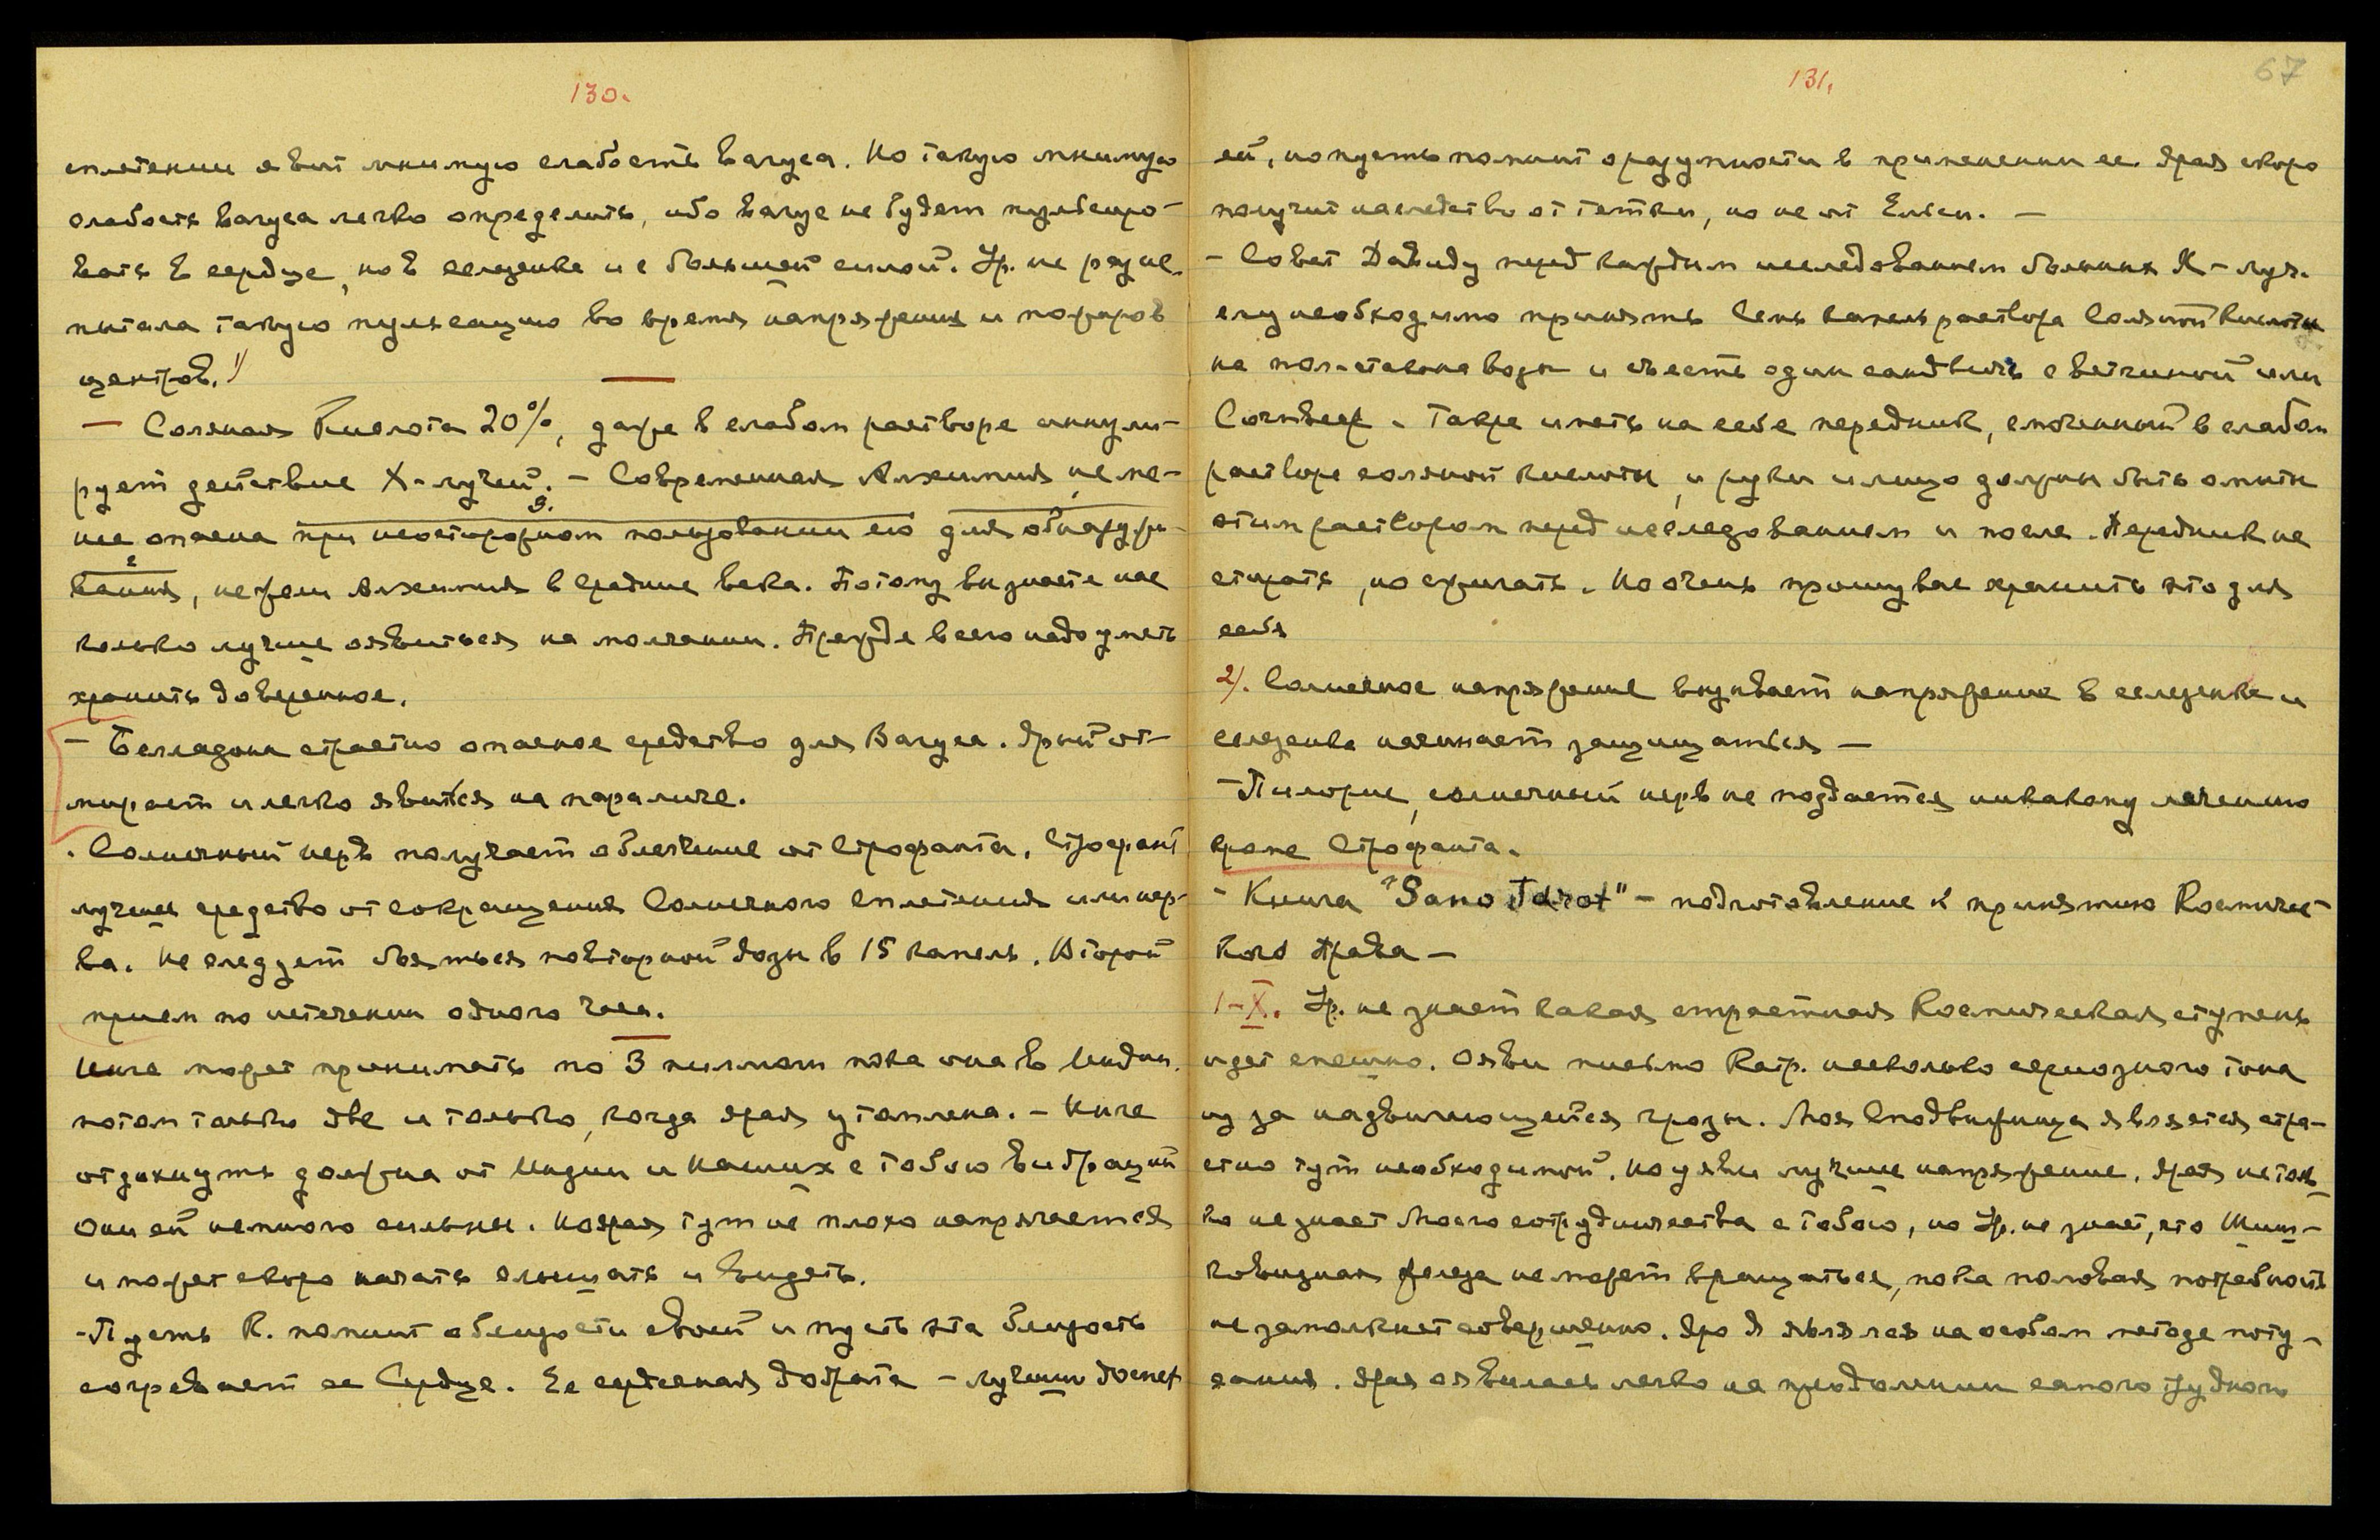 130.
сплетении явит мнимую слабость вагуса. Но такую мнимую
слабость вагуса легко определить, ибо вагус не будет пульсиро-
вать в сердце, но в селезенке и с большей силой. Ур. не раз ис-
пытала такую пульсацию во время напряжения и пожаров
центров. 1)
— Соляная Кислота 20%, даже в слабом растворе аннули-
рует действие X-лучей. – Современная Алхимия не ме-
нее опасна при неосторожном пользовании ею для обнаружи-
вания, нежели Алхимия в средние века. Потому вы знаете нас
колько лучше оявиться на молчании. Прежде всего надо уметь
хранить доверенное.
– Белладона страстно опасное средство для Вагуса. Ярый от-
мирает и легко явится на параличе.
. Солнечный нерв получает облегчение от Строфанта. Строфант
лучшее средство от сокращения Солнечного Сплетения или нер-
ва. Не следует бояться повторной дозы в 15 капель. Второй
прием по истечении одного часа.
Инге может принимать по 3 пилюли пока она в Индии.
потом только две и только, когда ярая утомлена. – Инге
отдохнуть должна от Индии и Наших с тобою вибраций
Они ей немного сильны. Но ярая тут не плохо напрягается
и может скоро начать слышать и видеть.
-Пусть К. помнит о близости своей и пусть эта близость
согревает ее Сердце. Ее сердечная доброта – лучший доспех
131.
67
ей, но пусть помнит о разумности в применении ее. Ярая скоро
получит наследство от тетки, но не от Ельси. —
– Совет Давиду перед каждым исследованием больных X-луч.
ему необходимо принять Семь капель раствора Соляной Кислоты
на пол-стакана воды и съесть один сандвич с ветчиной или
Cornbeef. Также иметь на себе передник, смоченный в слабом
растворе соляной кислоты, и руки и лицо должны быть омыты
этим раствором перед исследованием и после. Передник не
стирать, но сжигать. Но очень прошу вас хранить это для
себя
2). Солнечное напряжение вызывает напряжение в селезенке и
селезенка начинает защищаться —
–Пилорис, солнечный нерв не поддается никакому лечению
кроме Строфанта.
– Книга "Sano Tarot" – подготовление к принятию Космичес-
кого Права —
1-X. Ур. не знает какая страстная Космическая ступень
идет спешно. Ояви письмо Катр. несколько серьозного тона
из за надвигающейся грозы. Моя Сподвижница является стра-
стно тут необходимой. Но уяви лучшее напряжение. Ярая не толь-
ко не знает Моего сотрудничества с тобою, но Ур. не знает, что Шиш-
ковидная железа не может вращаться, пока половая потребность
не замолкнет совершенно. Яро Я являлся на особом методе поту-
хания. Ярая оявилась легко на преодолении самого трудного